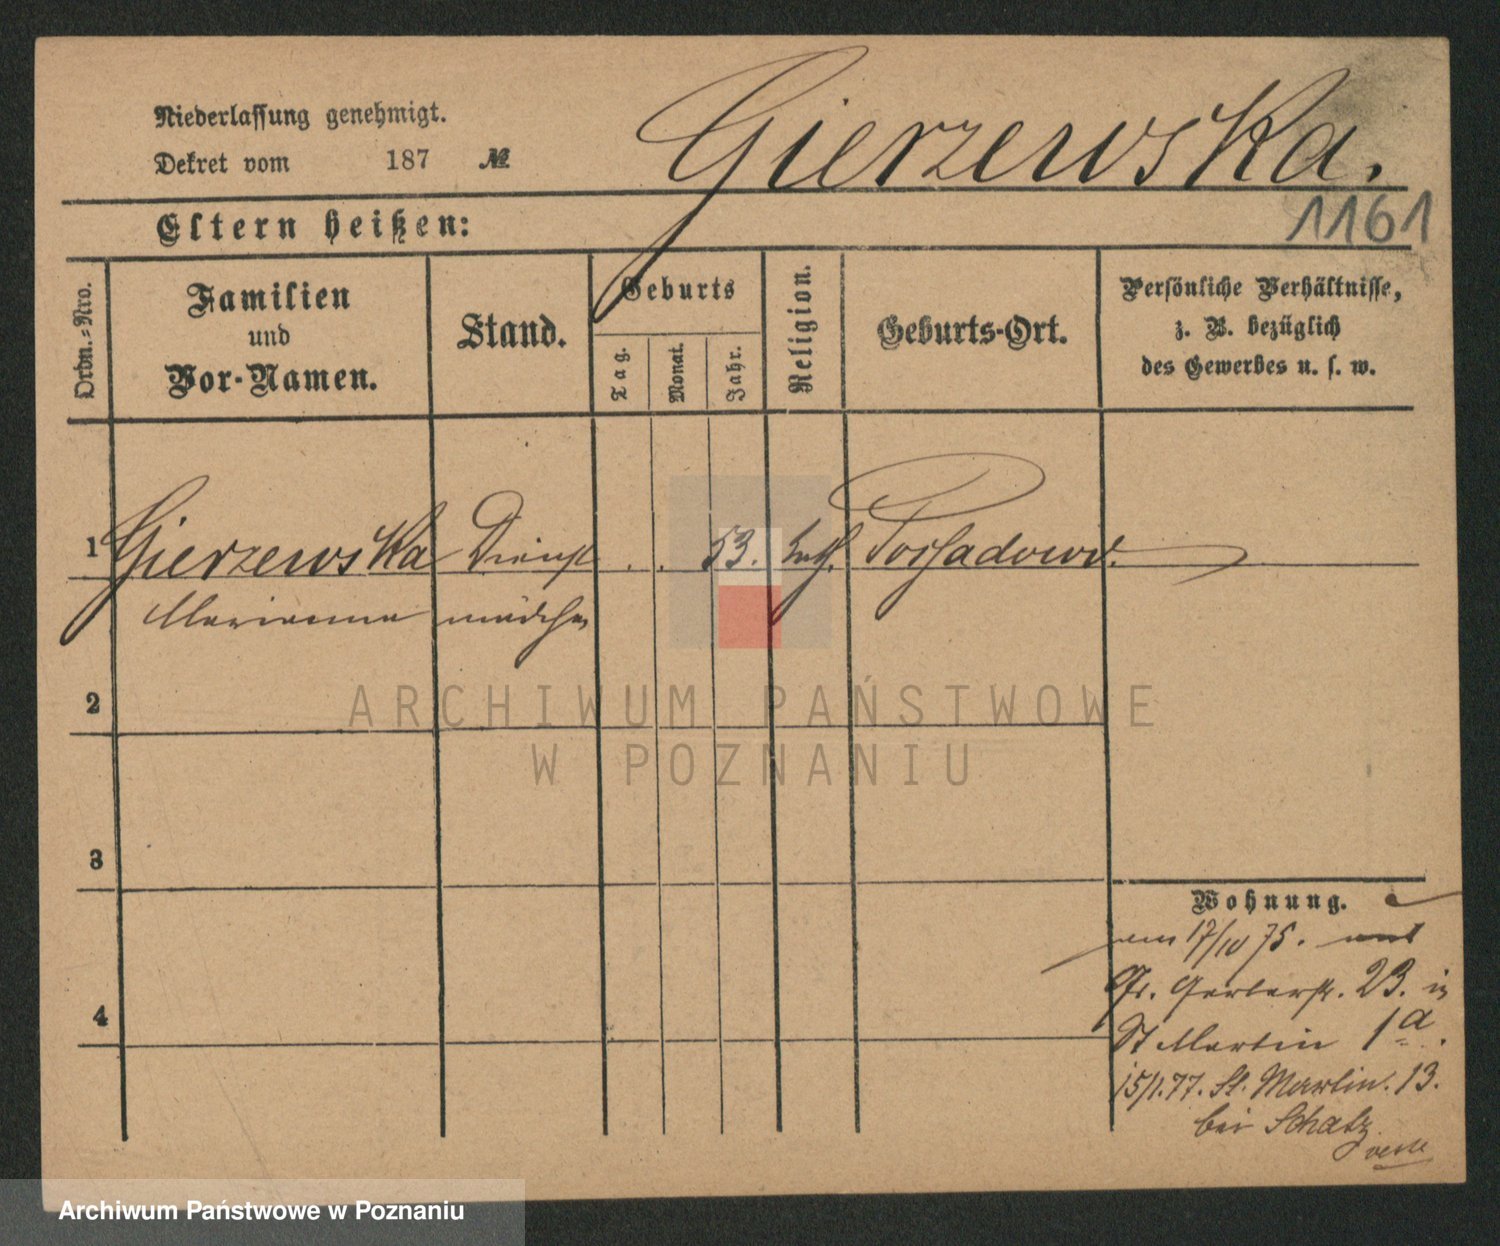 Niederlassung genehmigt.
Dekret vom 187 №
Gierzewska.
1161
Eltern heißen:
Ordn.-Nro.
Familien
und
Vor-Namen.
Stand.
Geburts
Tag.
Monat.
Jahr.
Religion.
Geburts-Ort.
Persönliche Verhältnisse,
z. B. bezüglich
des Gewerbes u. s. w.
1 Gierzewska Dienst . . 53. kath. Possadowo.
Marianna mädchen
2
3
4
Wohnung.
am 17/10 75.
Gr. Gerberstr. 23. in
St Martin 1a.
15/1.77. St. Martin. 13.
bei Schatz
ARCHIWUM PAŃSTWOWE
W POZNANIU
Archiwum Państwowe w Poznaniu